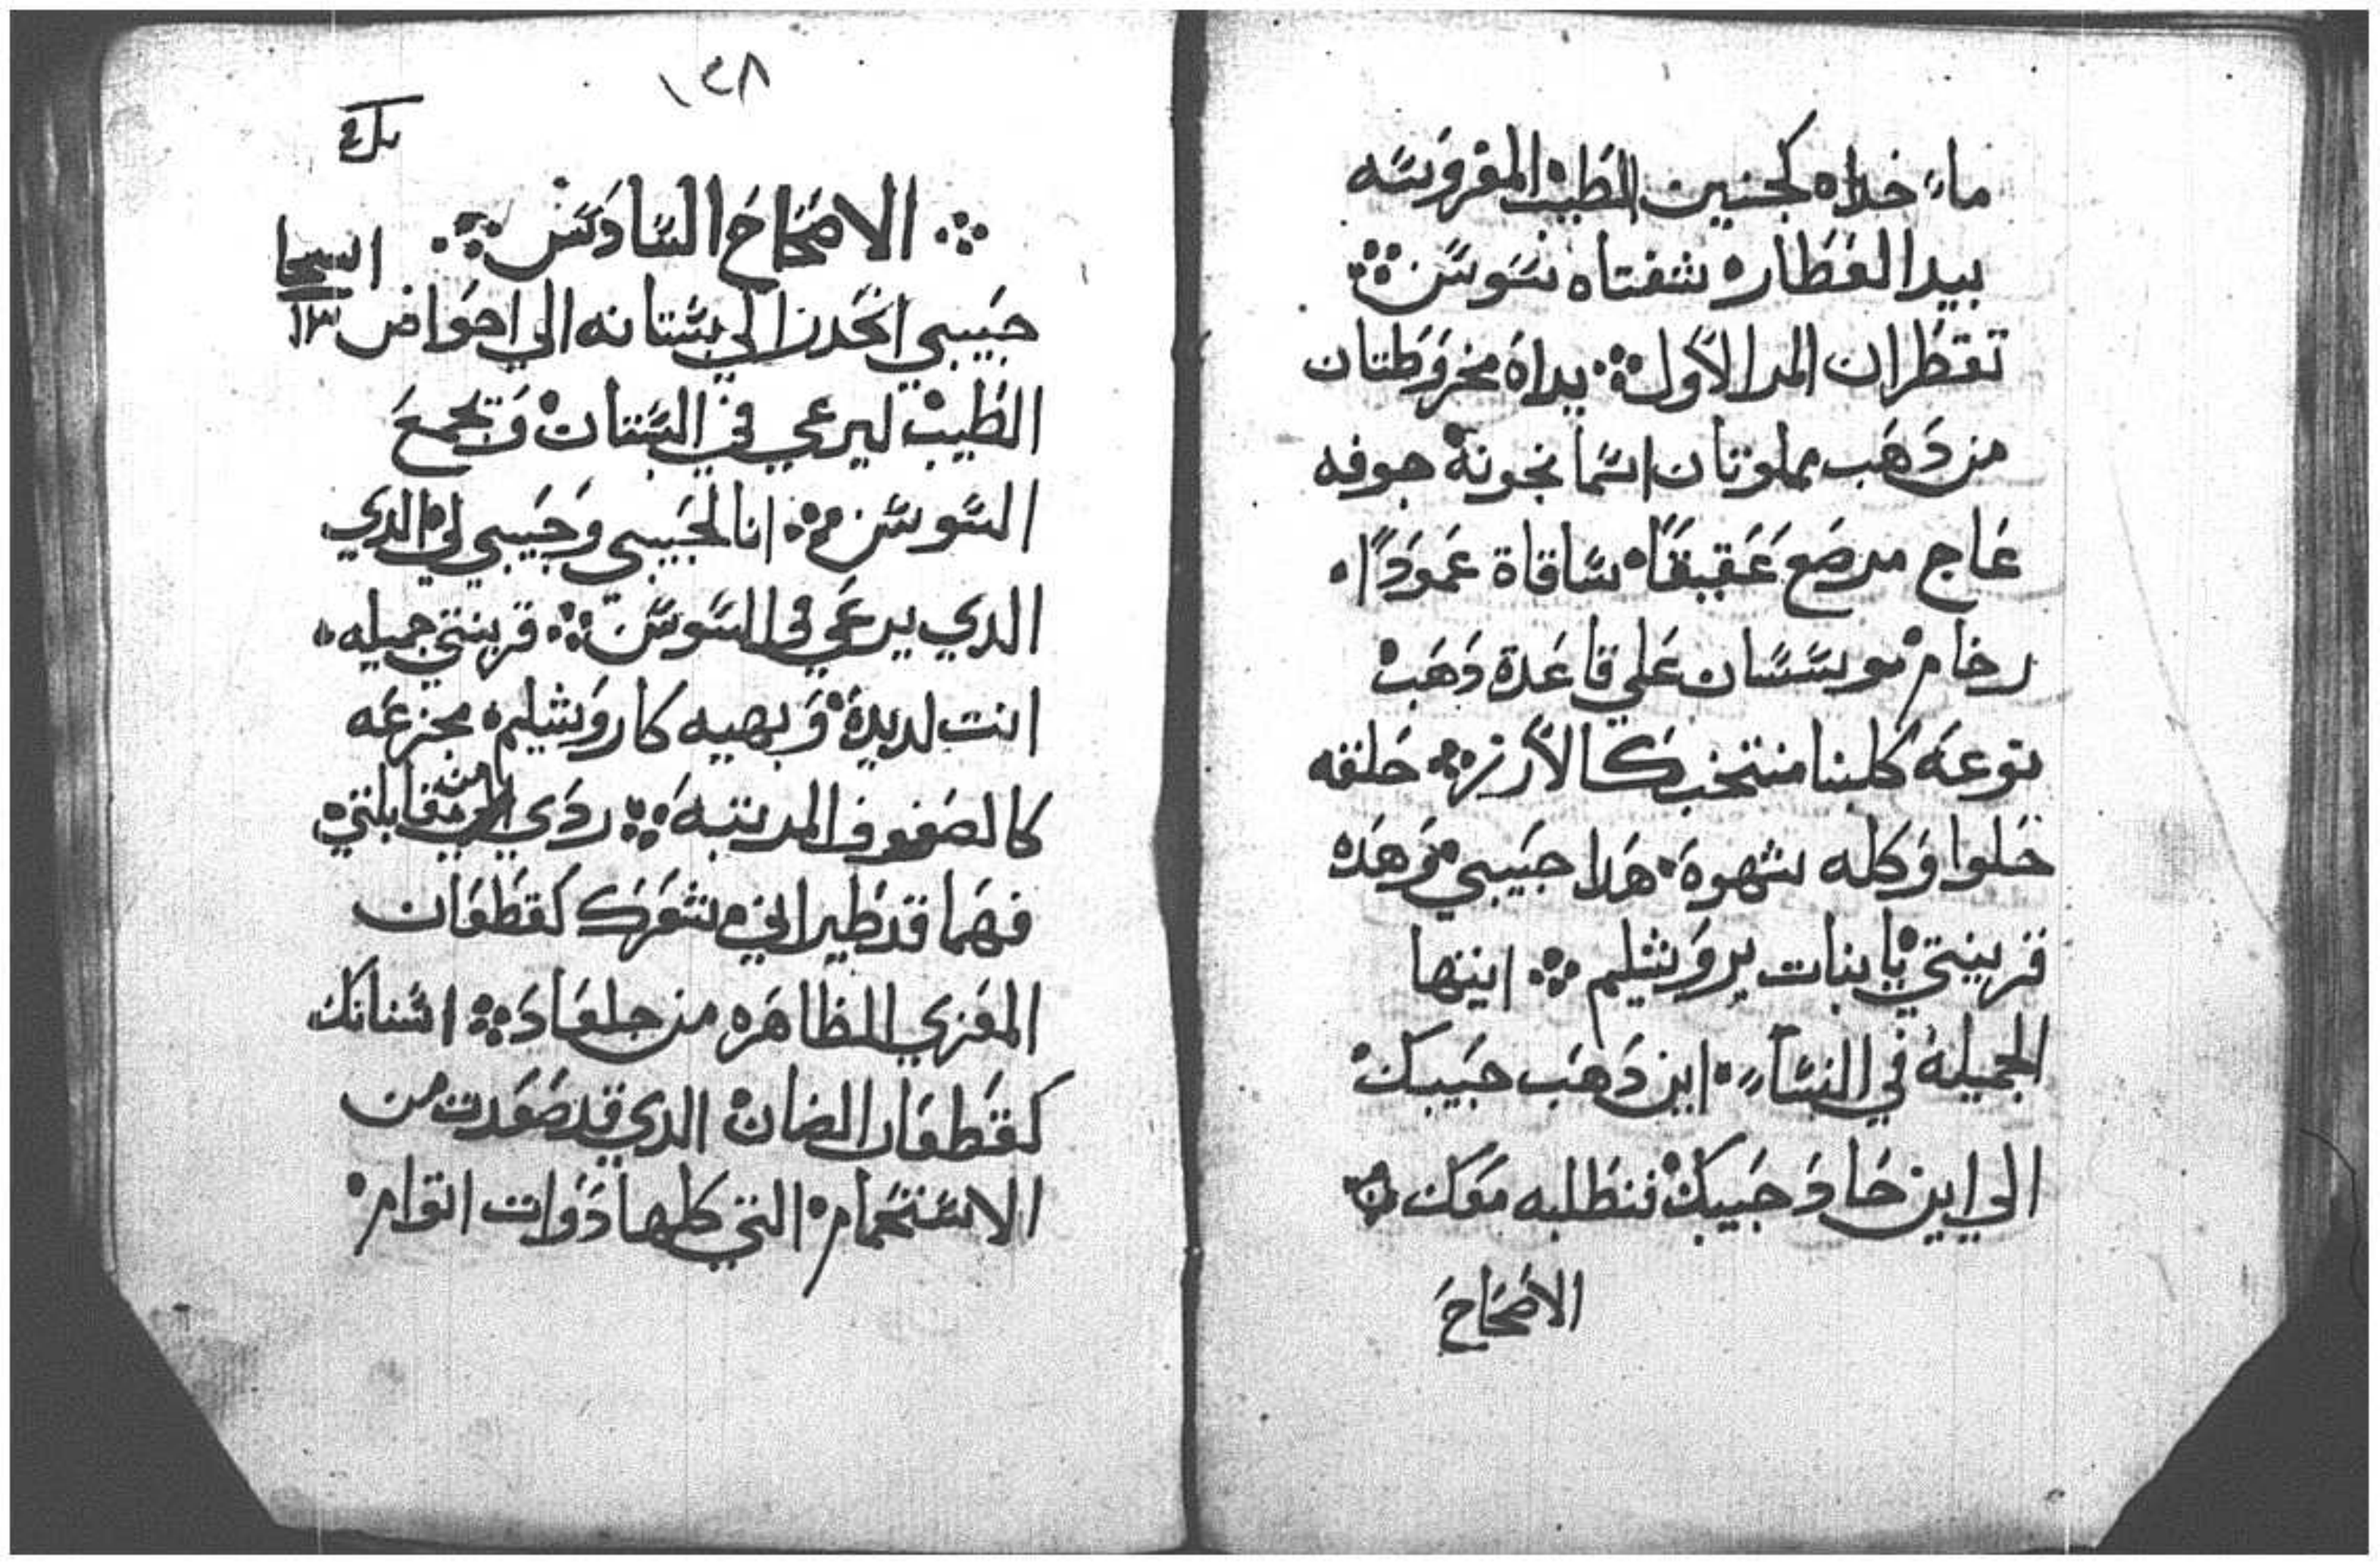 ماء خداه كجنين الطيب المغروسه
بيد العطاره شفتاه سوسن
تقطران المر الاول يداه مخروطتان
من ذهب مملوتان اسمانجونة جوفه
عاج مرصع عقيقًا ساقاة عمودًا
رخام موسسان علي قاعدة ذهب
نوعه كلبنا منتخب كالارز حلقه
حلوا وكله شهوة هدا حبيبي وهده
قرينتي يا بنات يروشليم ايتها
الجميلة في النساء اين ذهب حبيبك
الي اين حاد حبيبك فنطلبه معك
الاصحاح
١٤٨
الاصحاح السادس
حبيبي انحدر الي بستانه الي احواض
الطيب ليرعي في البستان ويجمع
السوسن انا لحبيبي وحبيبي لي الدي
الدي يرعي في السوسن قرينتي جميله
انت لديدة وبهيه كاروشليم مجزعه
كالصفوف المرتبة ردي من مقابلتي
فهما قد طيراني شعرك كقطعان
المعزي الظاهره من جلعاد اسنانك
كقطعان الضان الدي قد صعدت من
الاستحمام التي كلها ذوات اتوام